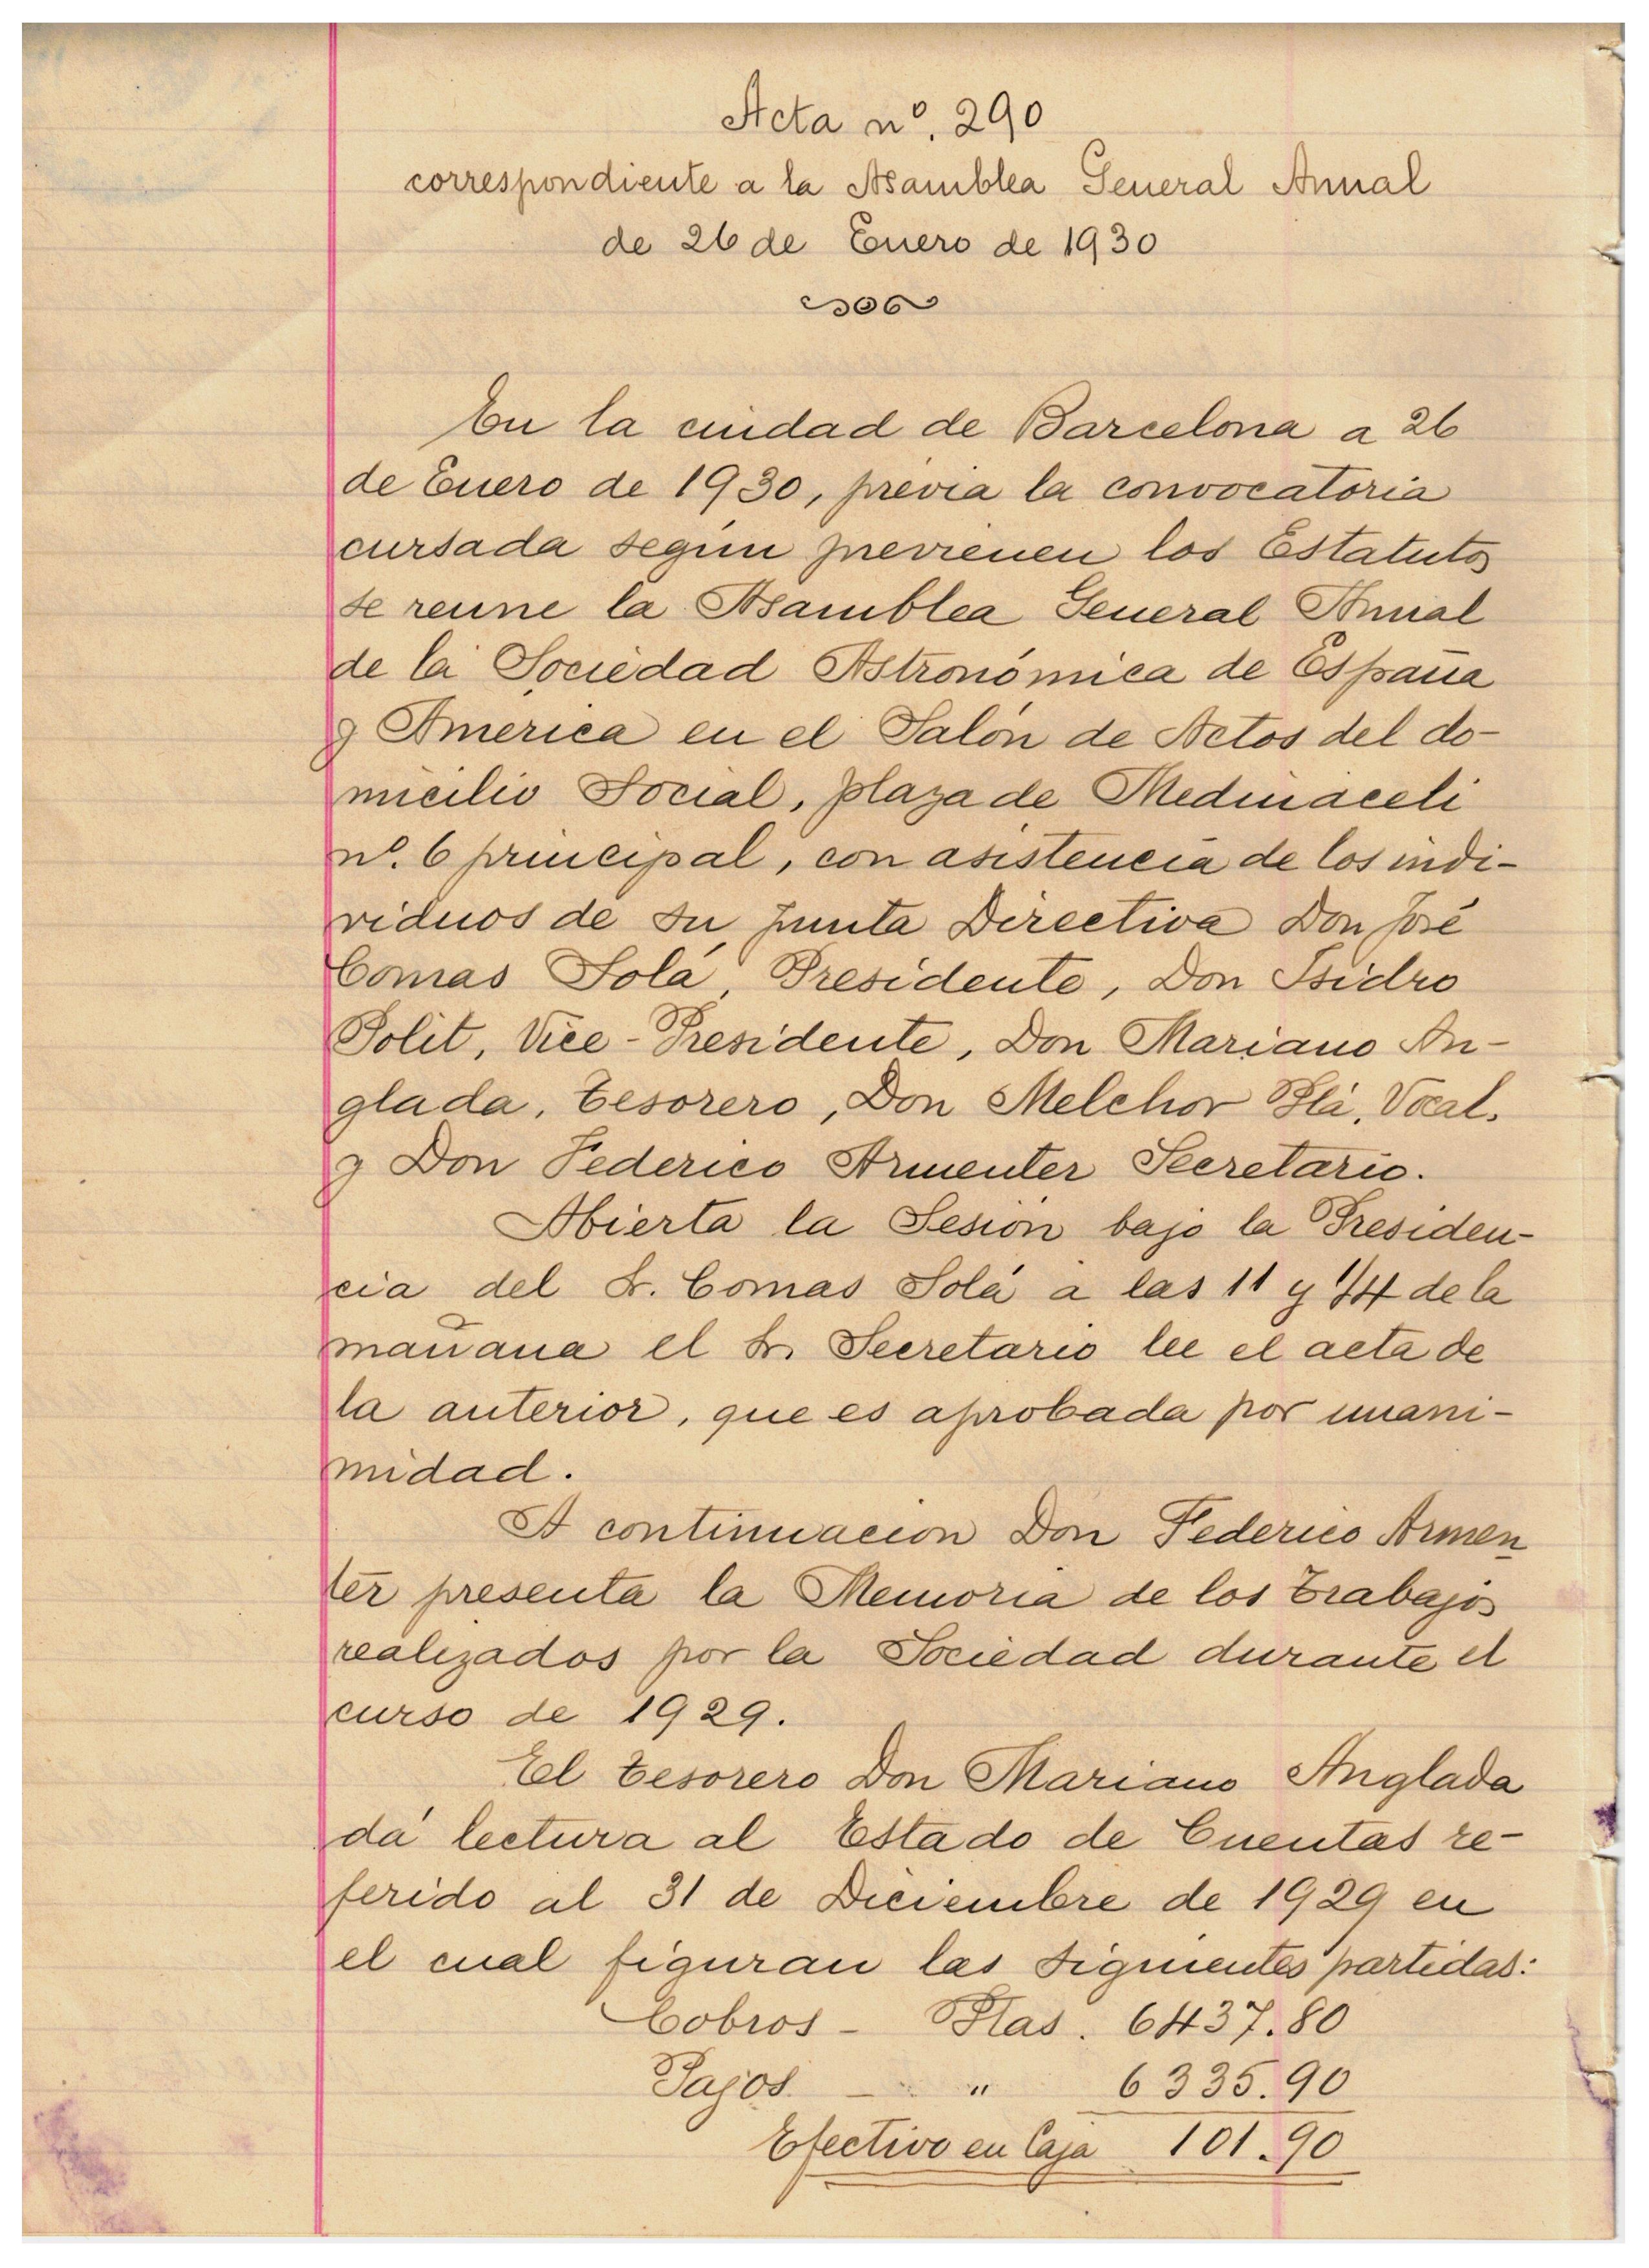 Acta nº. 290
correspondiente a la Asamblea General Anual
de 26 de Enero de 1930
En la ciudad de Barcelona a 26
de Enero de 1930, previa la convocatoria
cursada según previenen los Estatutos
se reune la Asamblea General Anual
de la Sociedad Astronómica de España
y America en el Salón de Actos del do-
micilio Social, plaza de Medinaceli
nº. 6 principal, con asistencia de los indi-
viduos de su Junta Directiva Don José
Comas Solá, Presidente, Don Isidro
Polit, Vice-Presidente, Don Mariano An-
glada, Tesorero, Don Melchor Plá, Vocal,
y Don Federico Armenter Secretario.
Abierta la Sesión bajo la Presiden-
cia del Sr. Comas Solá a las 11 y 1/4 de la
mañana el Sr. Secretario lee el acta de
la anterior, que es aprobada por unani-
midad.
A continuación Don Federico Armen
ter presenta la Memoria de los trabajos
realizados por la Sociedad durante el
curso de 1929.
El Tesorero Don Mariano Anglada
dá lectura al Estado de Cuentas re-
ferido al 31 de Diciembre de 1929 en
el cual figuran las siguientes partidas:
Cobros - Ptas. 6437.80
Pagos. - " 6335.90
Efectivo en Caja 101.90